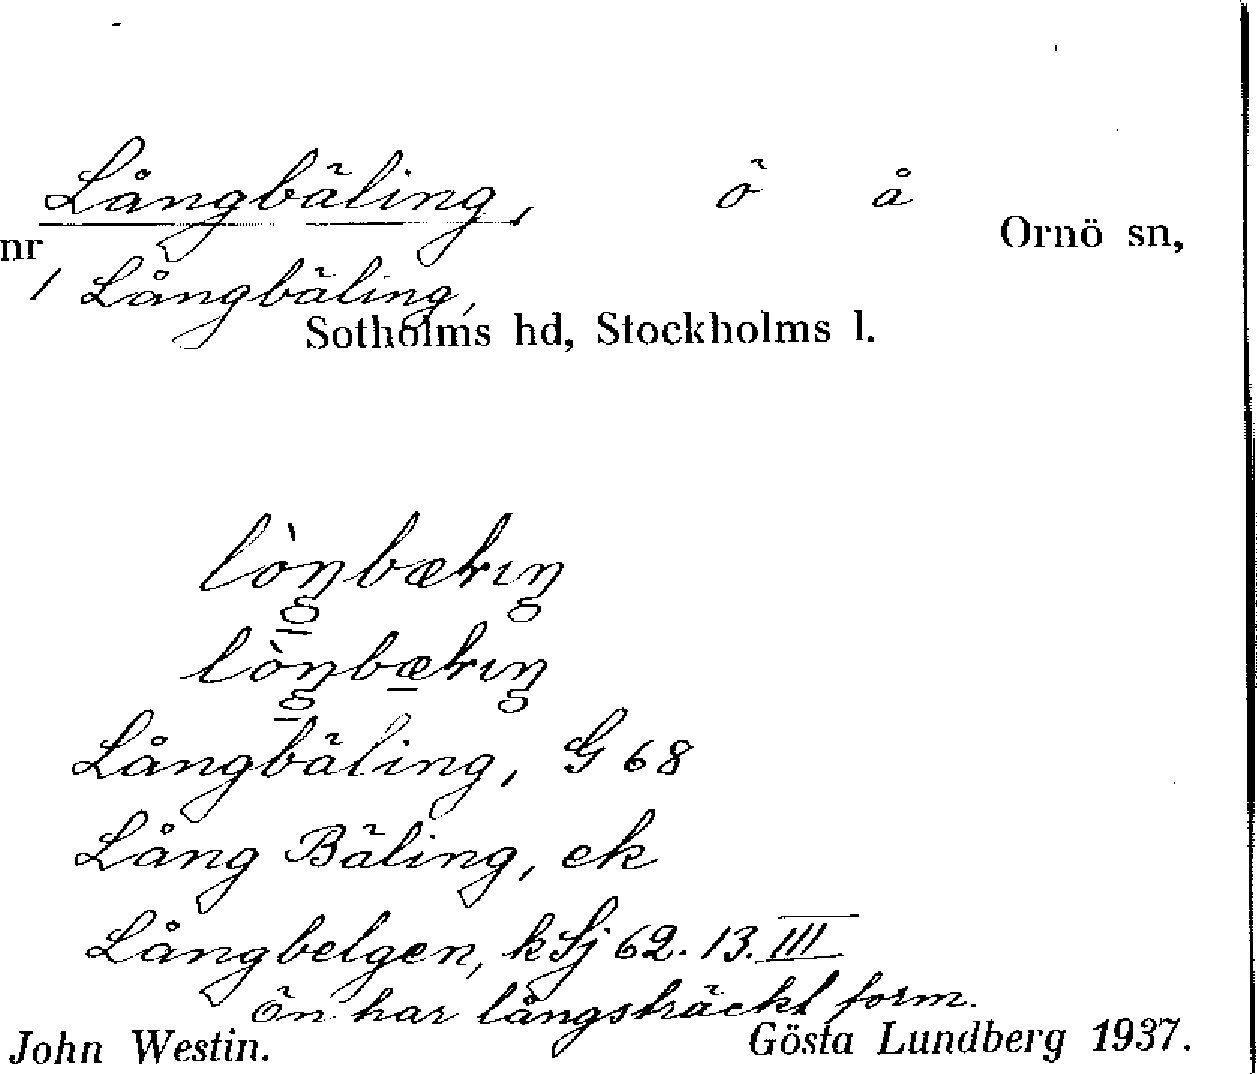 Långbäling, ö å
Ornö sn,
nr
/ Långbäling,
Sotholms hd, Stockholms l.
Långbäling, G 68
Lång Bäling, ek
Långbelgen, k Sj 62. 13. III
Ön har långsträckt form.
John Westin. Gösta Lundberg 1937.